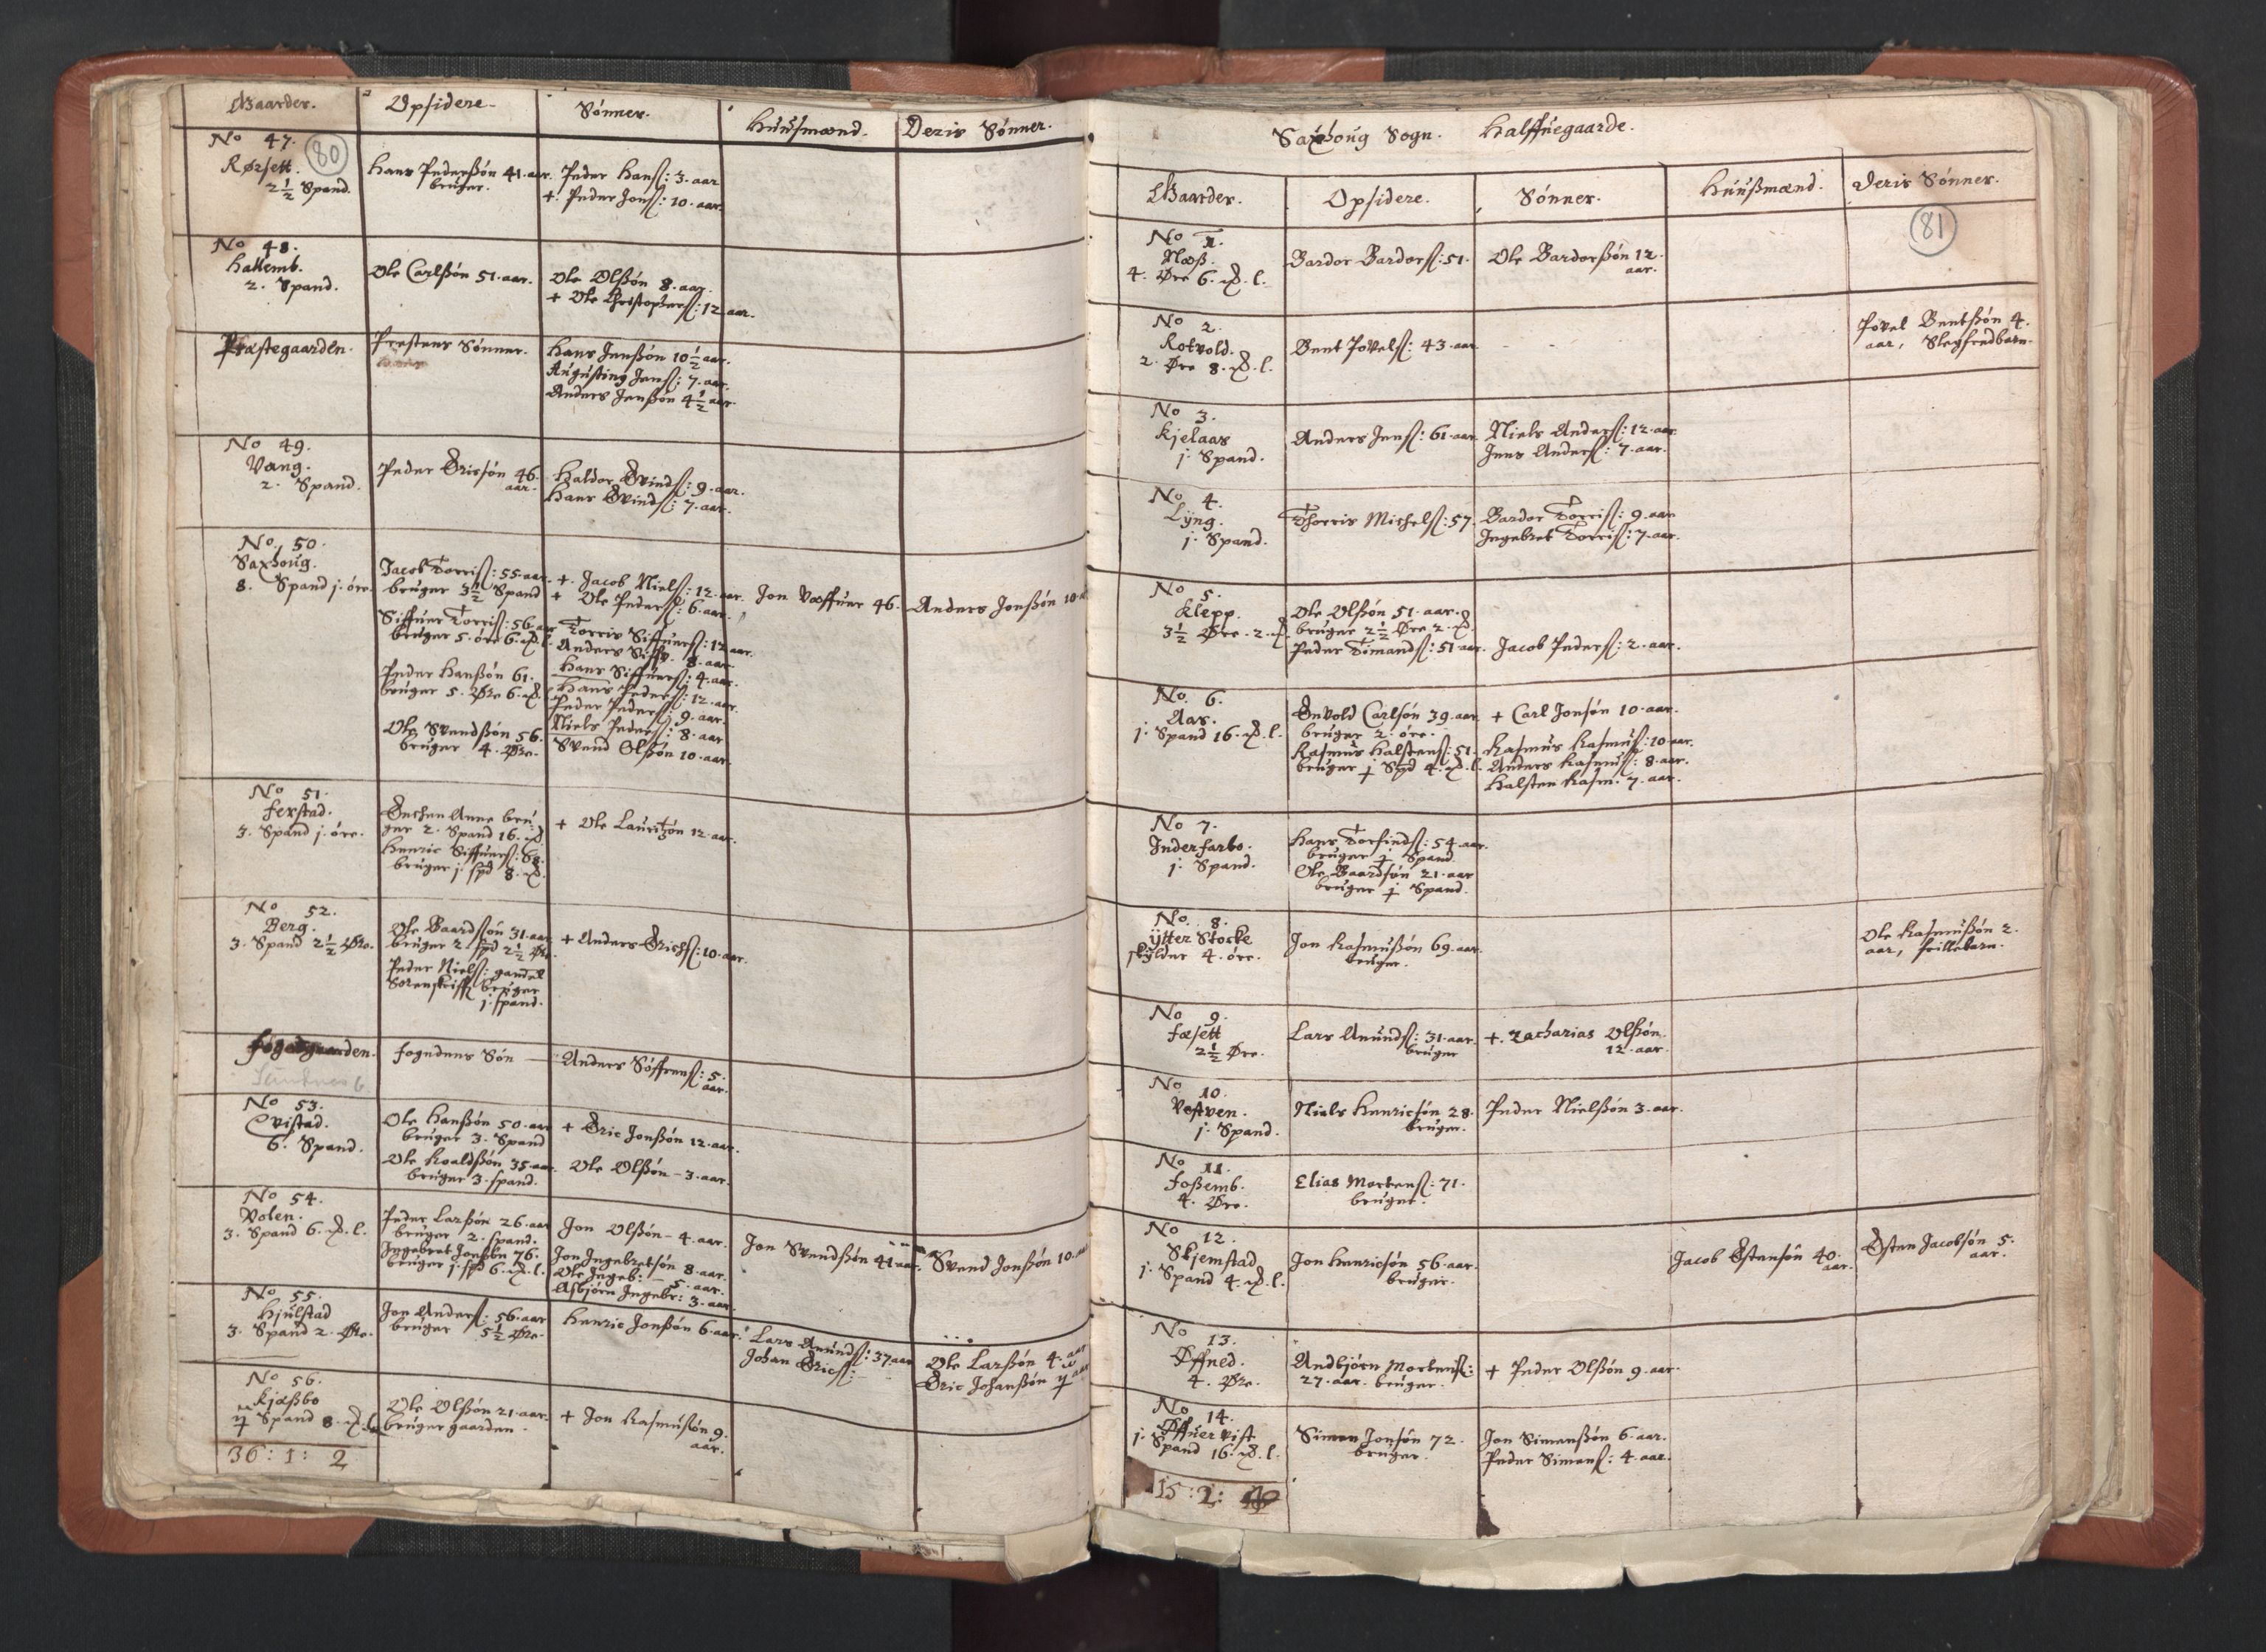 Gaarder. Opsidere. Sønner. Huusmænd. Deris Sønner.
80
No 47.
Rørsett.
2½ Spand.
Hans Pederßøn 41. aar.
bruger.
Peder Hansß: 3. aar
+. Peder Jonß: 10. aar.
No 48.
Hallemb.
2. Spand.
Ole Carlßøn 51. aar.
Ole Olßøn 8. aar.
+ Ole Christophersß: 12 aar.
Præstegaarden.
Prestens Sønner.
Hans Jenßøn 10½ aar.
Augusting Jensß: 7. aar.
Anders Jenßøn 4½ aar.
No 49.
Vang.
2. Spand.
Peder Ericsøn 46.
aar.
Haldor Evindß: 9. aar.
Hans Evindß: 7. aar.
No. 50.
Saxhoug.
8. Spand j. öre.
Jacob Torrisß: 55. aar.
bruger 3½ Spand
Siffuer Torrisß: 56. aar
bruger 5. öre 6. l.
Peder Hanßøn 61.
bruger 5. Øre 6.
Ole Svendßøn 56.
bruger 4. Øre.
+. Jacob Nielsß: 12. aar.
+ Ole Pedersß: 6. aar.
Torris Siffuersß: 12 aar.
Anders Siffv. 8. aar.
Hans Siffuersß: 4. aar.
Hans Pedersß: 12. aar.
Peder Pedersß: 9. aar.
Niels Pedersß: 8. aar
Svend Olßøn 10. aar.
Jon Væffuer 46.
Anders Jonßøn 10.
No 51.
Ferstad.
3. Spand j. öre.
Enchen Anne bru-
ger 2. Spand 16.
Henric Siffuersß:
bruger j. spd 8.
+ Ole Lauritzøn 12. aar.
No 52.
Berg.
3. Spand 2½ Øre.
Ole Baardßøn 31. aar
bruger 2. spd 2½ Øre.
Peder Nielsß: gamel
Sorenskriff: bruger
j. spand.
+ Anders Erichß: 10. aar.
Fogedgaarden.
Fogedens Søn
Anders Søffrensß: 5.
aar.
No 53.
Qvistad.
6. Spand.
Ole Hanßøn 50. aar
bruger 3. Spand
Ole Roaldßøn 35. aar.
bruger 3. spand.
+ Eric Jonßøn 12. aar.
Ole Olßøn – 3. aar.
No 54.
Volen.
3. Spand 6. l.
Peder Larßøn 26. aar
bruger 2. spand.
Ingebret Jonßøn 76.
bruger j. spd 6. l.
Jon Olßøn – 4. aar.
Jon Ingebretsøn 8. aar.
Ole Ingeb: – 5. aar.
Asbjørn Ingebr: 3. aar.
Jon Svendßøn 41 aar.
Svend Jonßøn 10. aar
No 55.
Hjulstad
3. Spand 2. Øre.
Jon Andersß: 56. aar
bruger 5½ Øre.
Henric Jonßøn 6. aar.
Lars Amundß: 37 aar
Johan Ericß:
Ole Larßøn 4. aar
Eric Johanßøn
No 56.
Kjæßbo
Spand 8.
Ole Olßøn 21. aar.
bruger gaarden.
+ Jon Rasmusøn 9.
aar.
36: 1: 2
Saxhoug Sogn. Halffuegaarde.
Gaarder. Opsidere. Sønner. Huußmænd. Deris Sønner.
81
No 1.
Næß.
4. Øre 6. l.
Bardor Bardorsß: 51.
Ole Bardorßøn 12.
aar.
No 2.
Rotvold.
2. Øre 8. l.
Bent Povelsß: 43. aar
Povel Bentßøn 4.
aar, Slegfredbarn.
No 3.
Kjelaas
j. Spand.
Anders Jensß: 61. aar.
Niels Andersß: 12. aar.
Jens Andersß: 7. aar.
No 4.
Lÿng.
j. Spand.
Thorris Michelsß: 57.
Bardor Torrisß: 9. aar
Ingebret Torrisß: 7. aar.
No 5.
Klepp.
3½ Øre. 2.
Ole Olßøn 51. aar.
bruger 2½ Øre 2.
Peder Simandß: 51. aar.
Jacob Pedersß: 2. aar.
No. 6.
Aas.
j. Spand 16. l.
Envold Carlsøn 39. aar
bruger 2. öre.
Rasmus Halstensß: 51.
bruger Spd 4. l.
+ Carl Jonsøn 10. aar.
Rasmus Rasmusß: 10. aar.
Anders Rasmusß: 8. aar.
Halsten Rasm. 7. aar.
No 7.
Inderfarbo.
j. Spand.
Hans Torfindß: 54. aar.
bruger Spand.
Ole Baardsøn 21. aar
bruger Spand.
No. 8.
ÿtter Stocke
skÿlder 4. öre.
Jon Rasmußøn 69. aar.
bruger.
Ole Rasmußøn 2.
aar, frillebarn.
No 9.
Fæsett
2½ Øre.
Lars Amundß: 31. aar.
bruger
+. Zacharias Olßøn.
12. aar.
No 10.
Vestven.
j. Spand.
Niels Henricsøn 28.
bruger.
Peder Nielßøn 3. aar.
No 11.
Foßemb.
4. Øre.
Elias Mortensß: 71.
bruger.
No 12.
Skjemstad
j. Spand 4. l.
Jon Henricsøn 56. aar.
bruger.
Jacob Østensøn 40.
aar.
Østen Jacobsøn 5.
aar.
No 13.
Øffned.
4. Øre.
Andbjørn Mortensß:
27. aar. bruger.
+ Peder Olßøn 9. aar.
No 14.
Øffuer vist
j. Spand 16. l.
Simen Jonsøn 72.
bruger.
Jon Simenßøn 6. aar.
Peder Simensß: 4. aar.
15: 2: